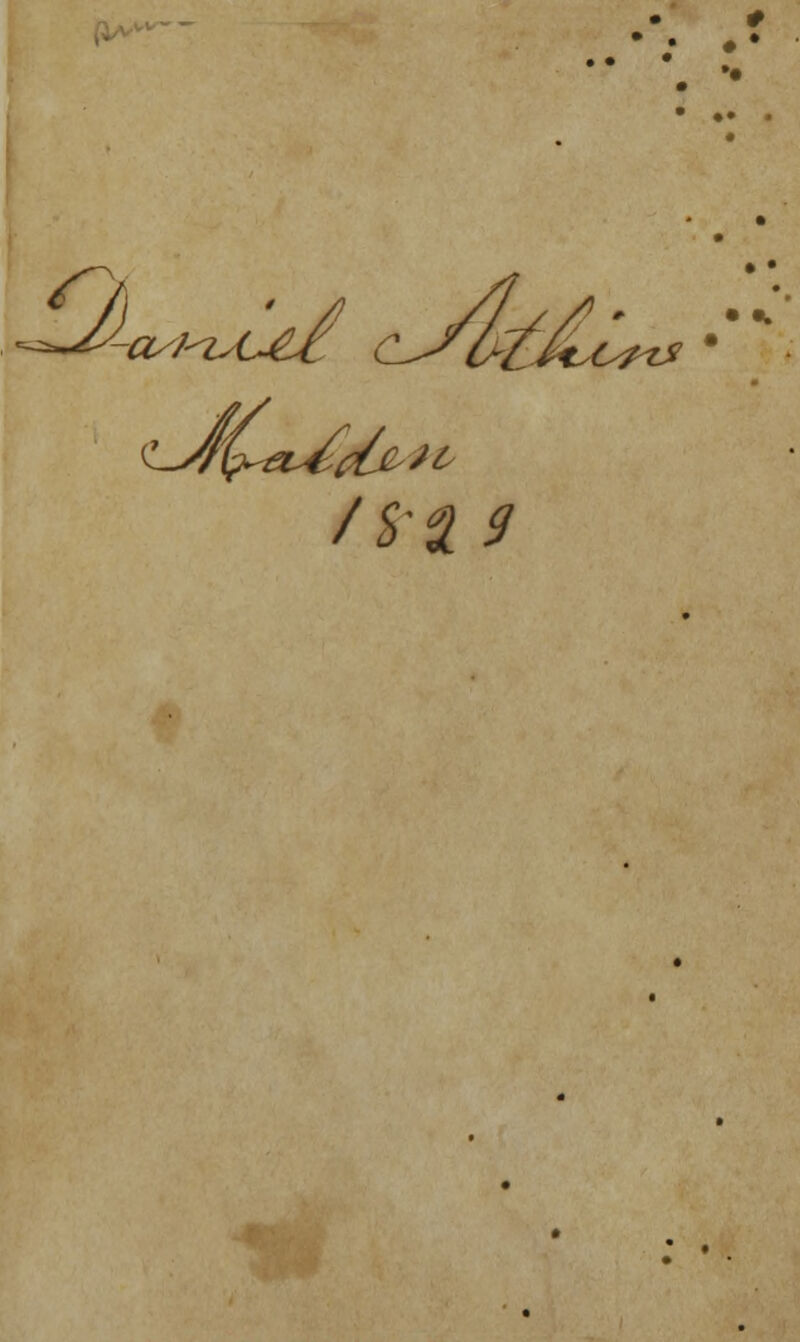 Daniel Atkins
Malden
1829